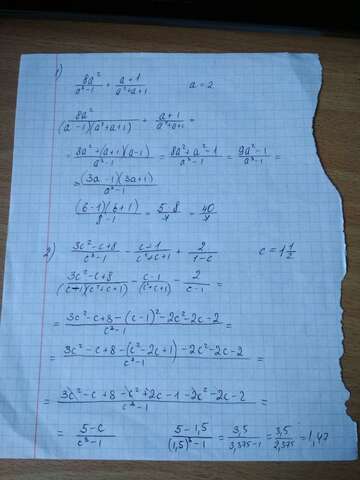 1)
8a²/(a³-1) + (a+1)/(a²+a+1)     a = 2
8a²/((a-1)(a²+a+1)) + (a+1)/(a²+a+1) =
= (8a²+(a+1)(a-1))/(a³-1) = (8a²+a²-1)/(a³-1) = (9a²-1)/(a³-1) =
= ((3a-1)(3a+1))/(a³-1)
((6-1)(6+1))/(8-1) = (5·8)/7 = 40/7
2) (3c²-c+8)/(c³-1) - (c-1)/(c²+c+1) + 2/(1-c)     c = 1 1/2
(3c²-c+8)/((c-1)(c²+c+1)) - (c-1)/(c²+c+1) - 2/(c-1) =
= (3c²-c+8-(c-1)²-2c²-2c-2)/(c³-1) =
= (3c²-c+8-(c²-2c+1)-2c²-2c-2)/(c³-1) =
= (3c²-c+8-c²+2c-1-2c²-2c-2)/(c³-1) =
= (5-c)/(c³-1)     (5-1,5)/((1,5)³-1) = 3,5/(3,375-1) = 3,5/2,375 = 1,47